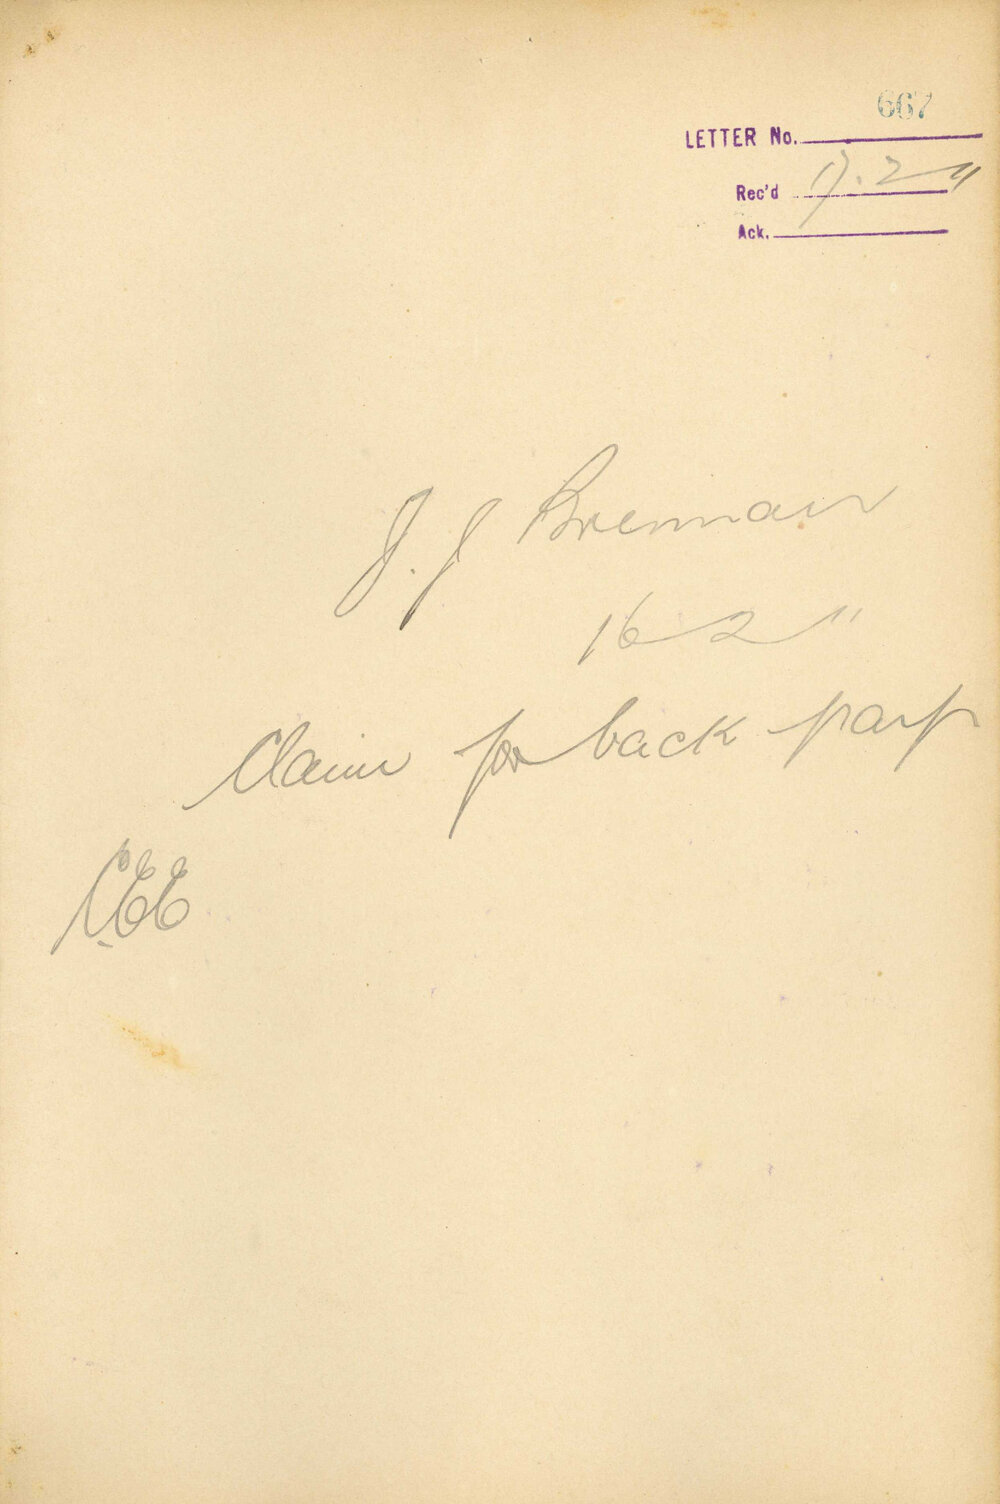 667
LETTER No.
Rec'd 17.2 11
Ack.
J. J Brennan
16 2 11
Claim for back pay